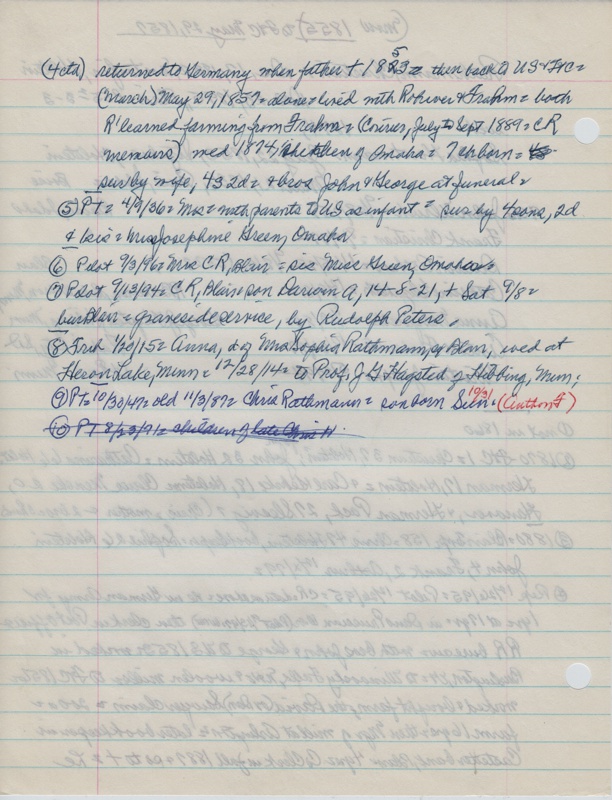 (4 ctd) returned to Germany when father + 1853 = then back to US & FtC =
(March) May 29, 1857 = alone = lived with Rohwer & Frahm = both
R' learned farming from Frahm = (Courier, July to Sept 1889 = CR
memoirs) med 1874, of Omaha = 7 ch born =
sur by wife, 4 s 2 d = & bros John & George at funeral =
(5) PT = 4/9/36 = Mrs = with parents to US as infant = sur by 4 sons, 2d
& 1 sis = Mrs Josephine Green, Omaha
(6) Pilot 9/3/96 = Mrs CR, Blair = sis Miss Green, Omaha =
(7) Pilot 9/13/94 = CR, Blair = son Darwin A, 14-8-21, + Sat 9/8 =
bur Blair = graveside service, by Rudolph Peters.
(8) Trib 1/20/15 = Anna, d of Mrs Sophia Rathmann, of Blair, wed at
Heron Lake, Minn = 12/28/14 = to Prof. J G Hagsted of Hibbing, Minn;
(9) PT = 10/30/47 = old 11/3/87 = Chris Rathmann = son born Sun. 10/31 (Anthon F)
(10) PT 8/23/71 = children of late Chris H.